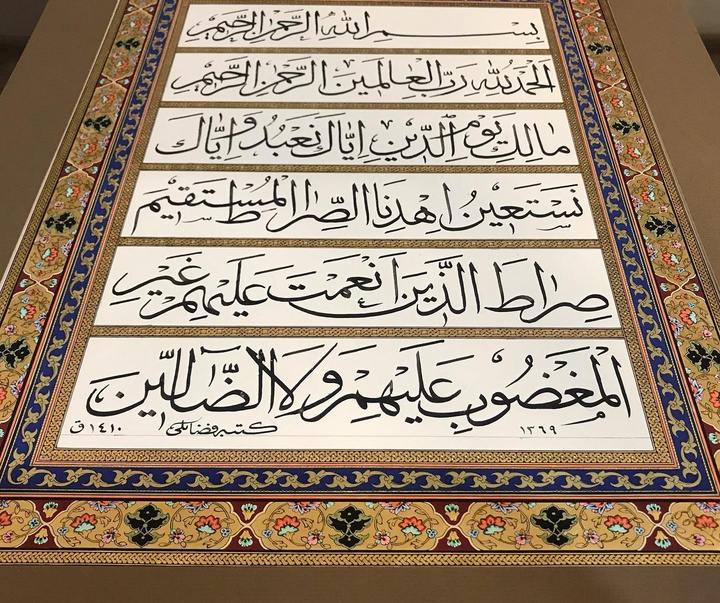 بِسْمِ اللهِ الرَّحْمٰنِ الرَّحيمِ
اَلْحَمْدُ لِلّٰهِ رَبِّ الْعالَمينَ الرَّحْمٰنِ الرَّحيمِ
مالِكِ يَوْمِ الدّينِ اِيّاكَ نَعْبُدُ وَ اِيّاكَ
نَسْتَعينُ اِهْدِنَا الصِّراطَ الْمُسْتَقيمَ
صِراطَ الَّذينَ اَنْعَمْتَ عَلَيْهِمْ غَيْرِ
الْمَغْضُوبِ عَلَيْهِمْ وَلَا الضّآلّينَ
١٣٦٩ كتبه فضائلى ١٤١٠ ق